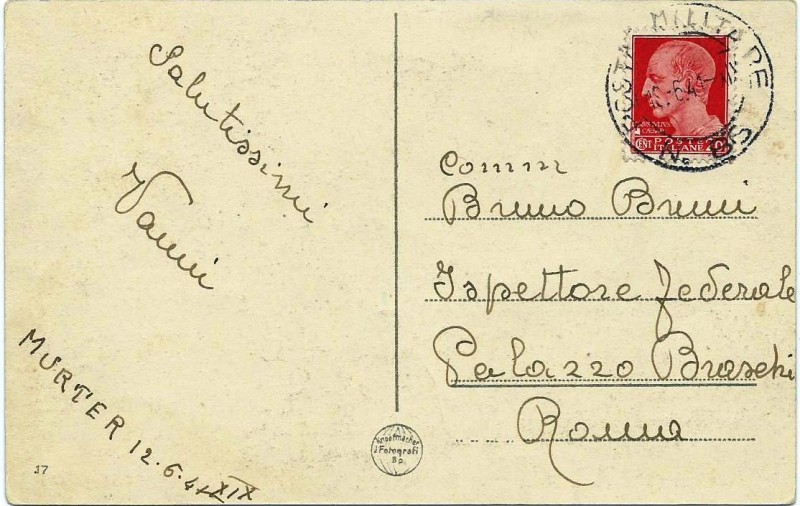 Salutissimi
Vanni
MURTER 12.6.41 XIX
17
POSTA MILITARE
N. 
CENT 20
POSTE
ITALIANE
Comm
Bruno Bruni
Ispettore Federale
Palazzo Braschi
Roma
Knopfmacher
i Fotografi
Bp.